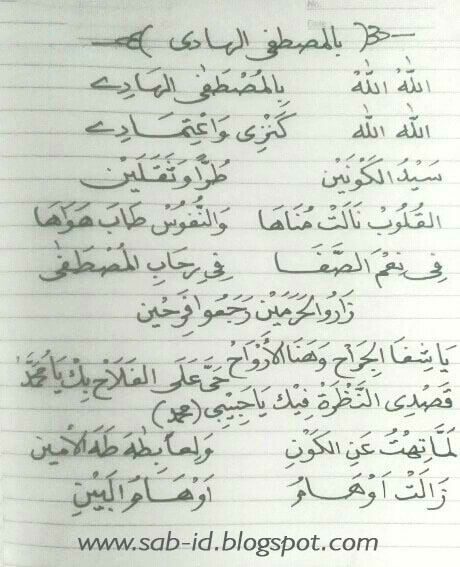 بالمصطفى الهادى
اللهُ اللهْ بِالمُصْطَفٰى الهَادِے
اللهْ اللهْ كَنْزِى وَاعْتِمَادِے
سَيِّدَ الكَوْنَيْن طُرًّا وَثَقَلَيْن
القُلُوبْ نَالَتْ مُنَاهَا وَالنُّفُوسْ طَابَ هَوَاهَا
فِى نِعْمَ الصَّفَا فِى رِحَابِ المُصْطَفٰى
زَارُوا الحَرَمَيْن رَجَعُوا فَرِحِين
يَا شِفَا الجِرَاح وَهَنَا الأَرْوَاح حَىَّ عَلَى الفَلَاحْ بِكْ يَا مُحَمَّدْ
قَصْدِى النَّظْرَةْ فِيْكَ يَا حَبِيْبِى (محمد)
لَمَّا تِهْتُ عَنِ الكَوْنِ بِطٰهَ طٰهَ الأَمِين
زَالَتْ اَوْهَامُ اَوْهَامُ البَيْنِ
www.sab-id.blogspot.com